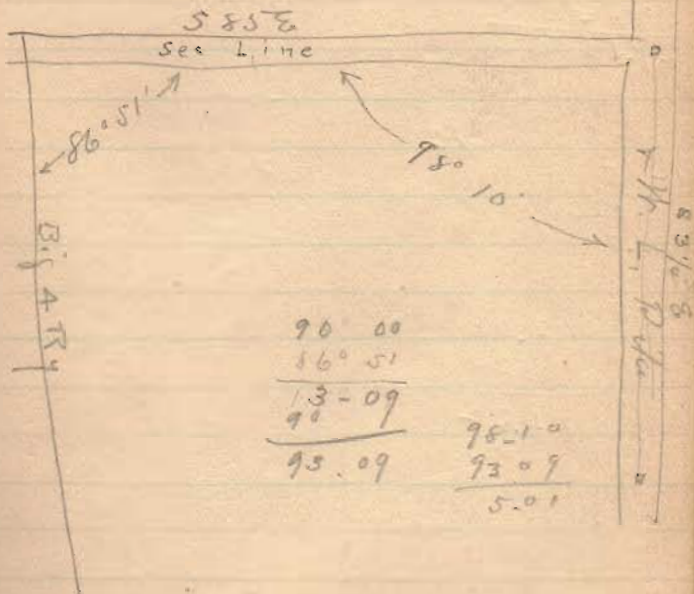 585
Sec Line
86° 51'
98° 10'
Big 4 Ry
90 00
86° 51
3-09
90
93.09
98-10
93 09
5-01